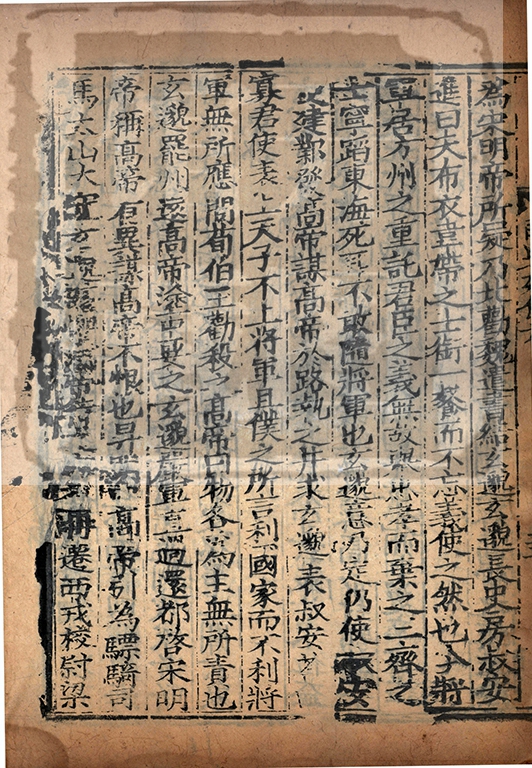 為宋明帝所疑乃北勸魏遺書結玄邈玄邈長史房叔安
進曰夫布衣韋帶之士銜一餐而不忘義使之然也今將
軍居方州之重託君臣之義無故舉忠孝而棄之三齊之
士寧蹈東海死不敢隨將軍也玄邈意乃定仍使安
建鄴發高帝謀高帝於路執之并求玄邈表叔安
寡君使表上天子不上將軍且僕之所言利國家而不利將
軍無所應問荀伯玉勸殺之高帝曰物各為主無所責也
玄邈罷州還高帝塗中要之玄邈嚴軍直過還都啓宋明
帝稱高帝有異謀高帝不恨也昇明高帝引為驃騎司
馬太山太守玄邈懼高帝再遷西戎校尉梁